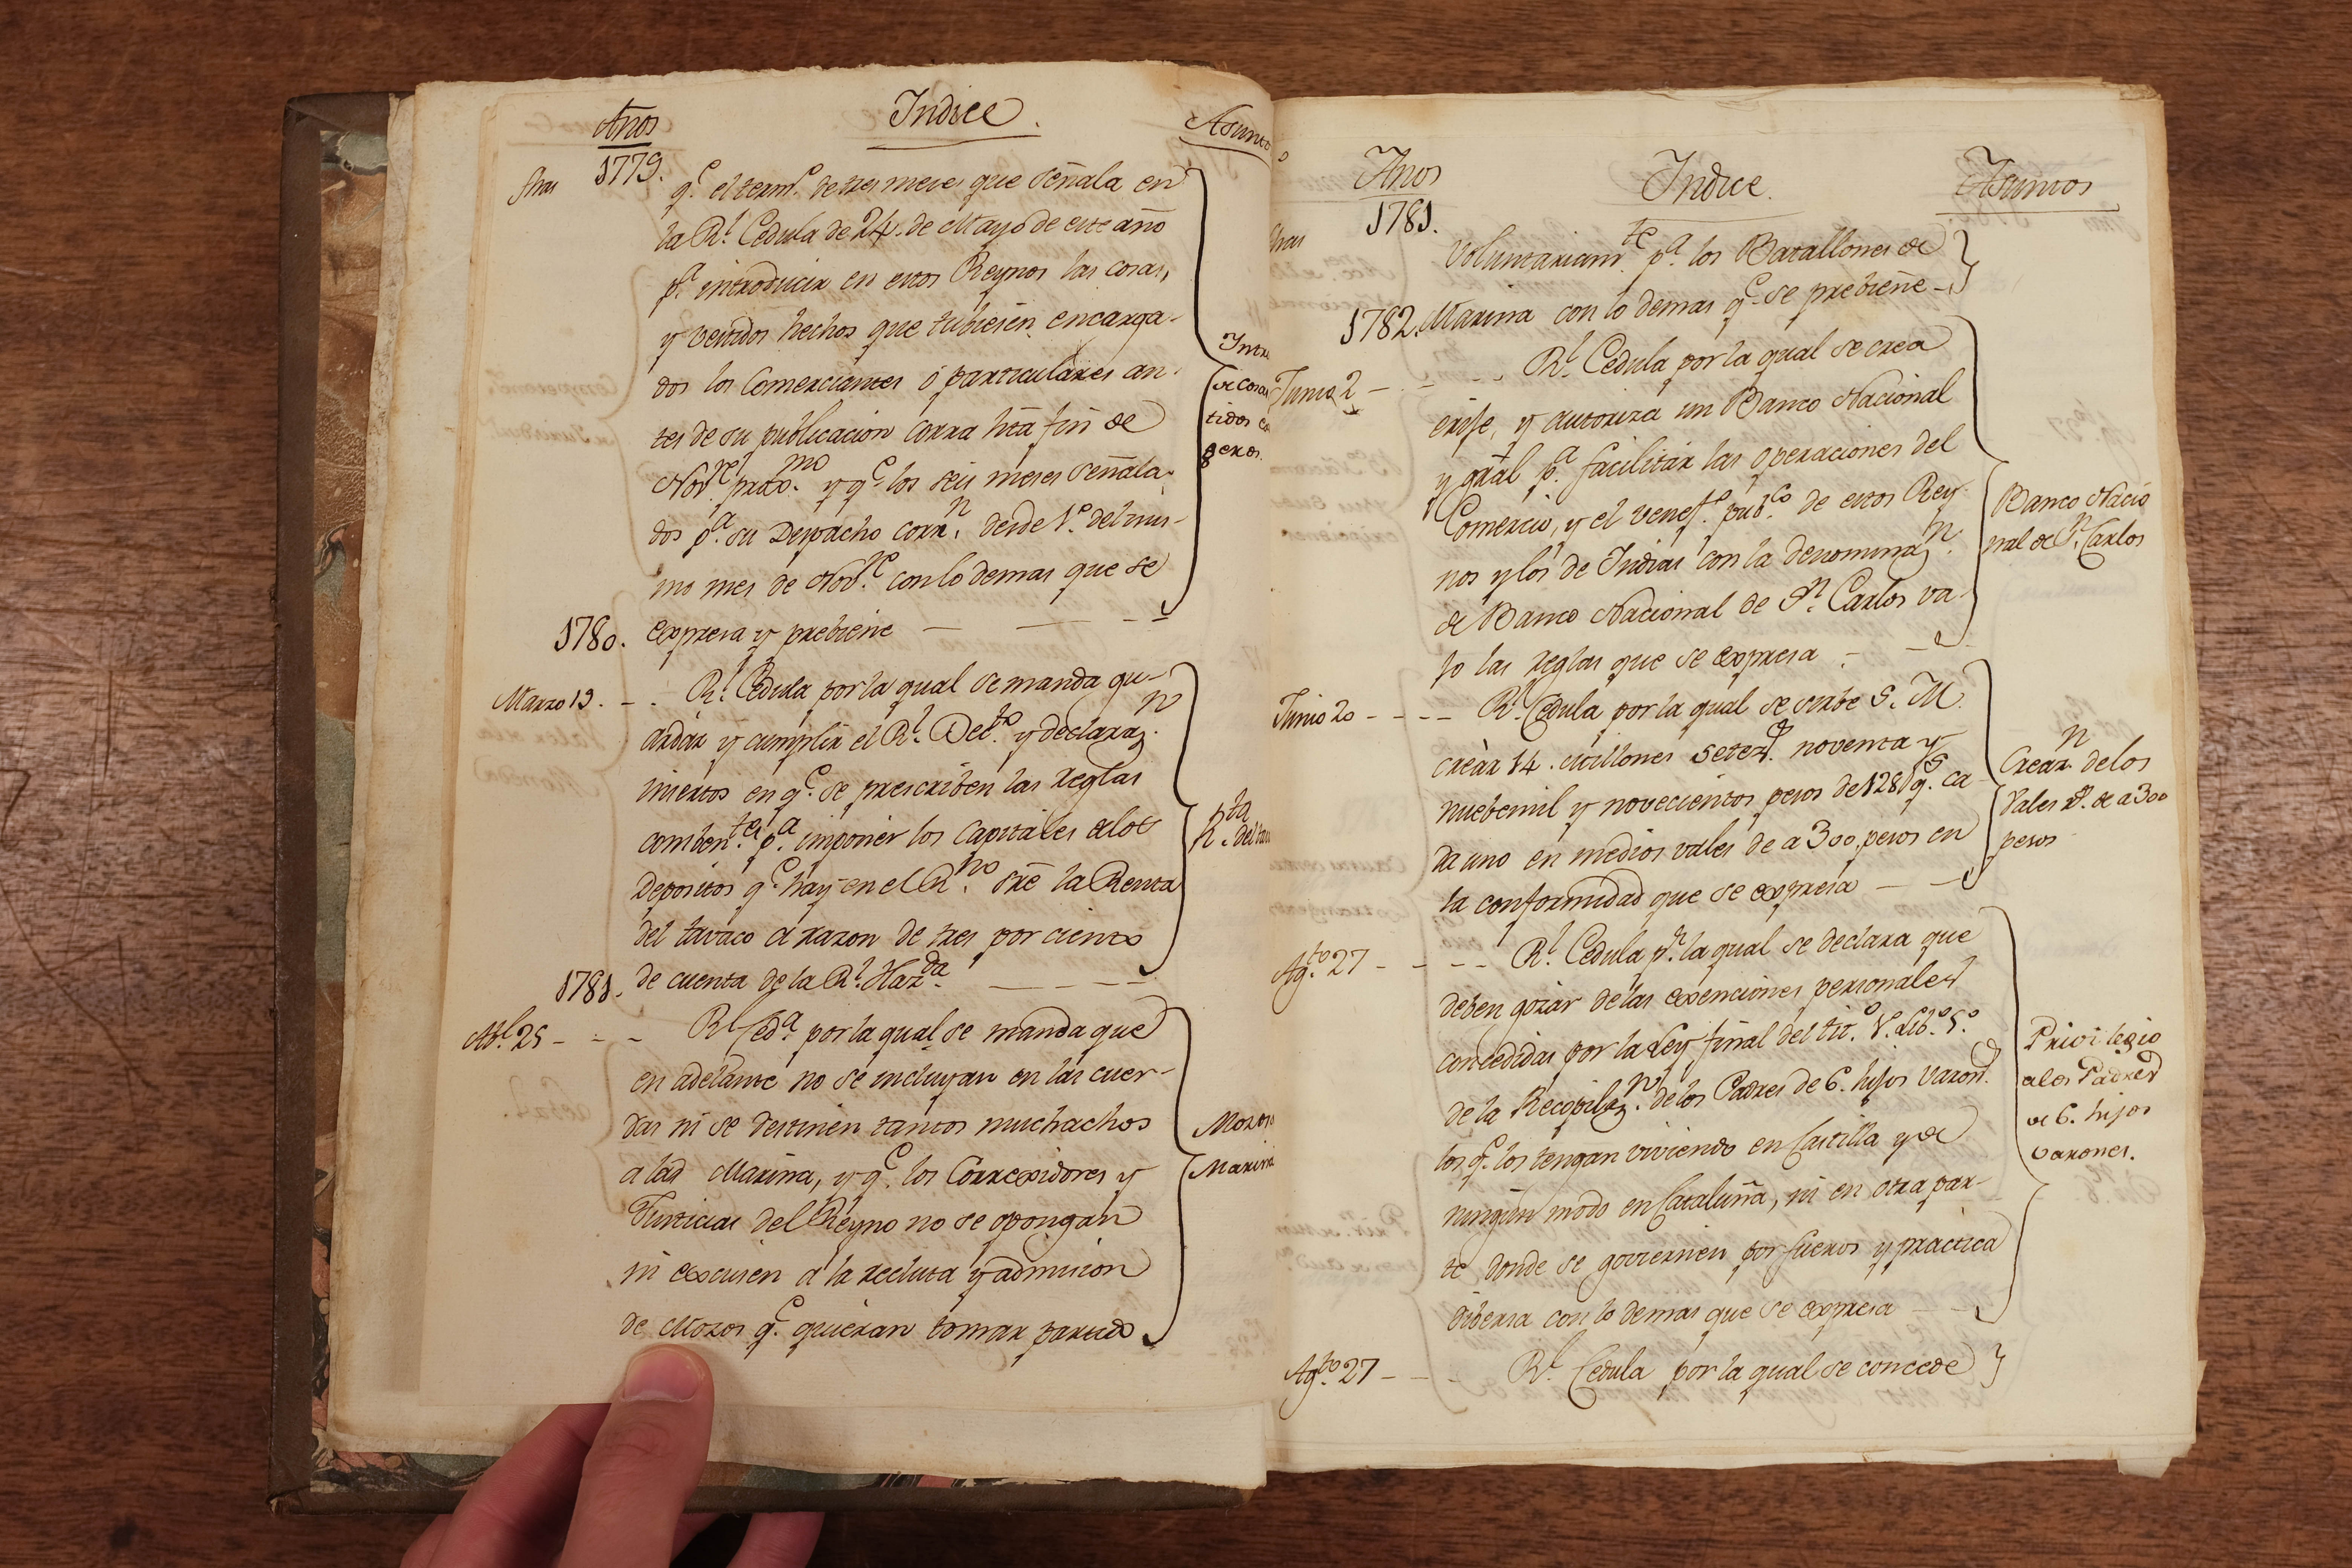 Años
Indice.
Asuntos
1779.
q.e el term.o de tres meses que señala en
la R.l Cedula de 24. de Mayo de este año
p.a introducir en estos Reynos las cosas,
y vestidos hechos que tubiesen encarga-
dos los Comerciantes ó particulares an-
tes de su publicacion corra hta fin de
Nov.re prox.mo y q.e los seis meses señala-
dos p.a su Despacho corr.n desde 1.o del mis-
mo mes de Nov.e con lo demas que se
1780. expresa y prebiene
Marzo 13. R.l Cedula por la qual se manda gu-
ardar y cumplir el R.l Dec.to y declaraz.n
insertos en q.e se prescriben las reglas
comben.tes p.a imponer los Capitales de los
Depositos q.e hay en el R.no sre la Renta
del tavaco á razon de tres por ciento
1781. de cuenta de la R.l Haz.da
Ab.l 25 R.l Ced.a por la qual se manda que
en adelante no se incluyan en las cuer-
das ni se destinen tantos muchachos
a las Marina, y q.e los Correxidores y
Justicias del Reyno no se opongan
ni excusen á la recluta y admision
de Mozos q.e quieran tomar partido
de cosas
tidos
geros.
Mozos
Marina
Años
Indice.
Asuntos
1781.
Voluntariam.te p.a los Batallones de
1782. Marina con lo demas q.e se prebiene
Junio 2 R.l Cedula por la qual se crea
erije, y autoriza un Banco Nacional
y gral p.a facilitar las operaciones del
Comercio, y el benef.o pub.co de estos Rey-
nos y los de Indias con la denominaz.n
de Banco Nacional de S.n Carlos va-
jo las reglas que se expresa
Banco Nacio
nal de S.n Carlos
Junio 20 R.l Cedula por la qual se sirbe S. M.
creàr 14. millones setez.s noventa y
nuebemil y novecientos pesos de 128 q.s ca
da uno en medios vales de a 300 pesos en
la conformidad que se expresa
Creaz.n de los
Vales R.s de a 300
pesos
Ag.to 27 R.l Cedula p.r la qual se declara que
deben gozar de las exenciones personales
concedidas por la Ley final del tit.o 1.o Lib.o 5.o
de la Recopilaz.n de los Padres de 6. hijos varon.s
los q.e los tengan viviendo en Castilla y de
ningun modo en Cataluña, ni en otra par-
te donde se goviernen por fueros y practica
diversa con lo demas que se expresa
Privilegio
a los Padres
de 6. hijos
varones.
Ag.to 27 R.l Cedula por la qual se concede